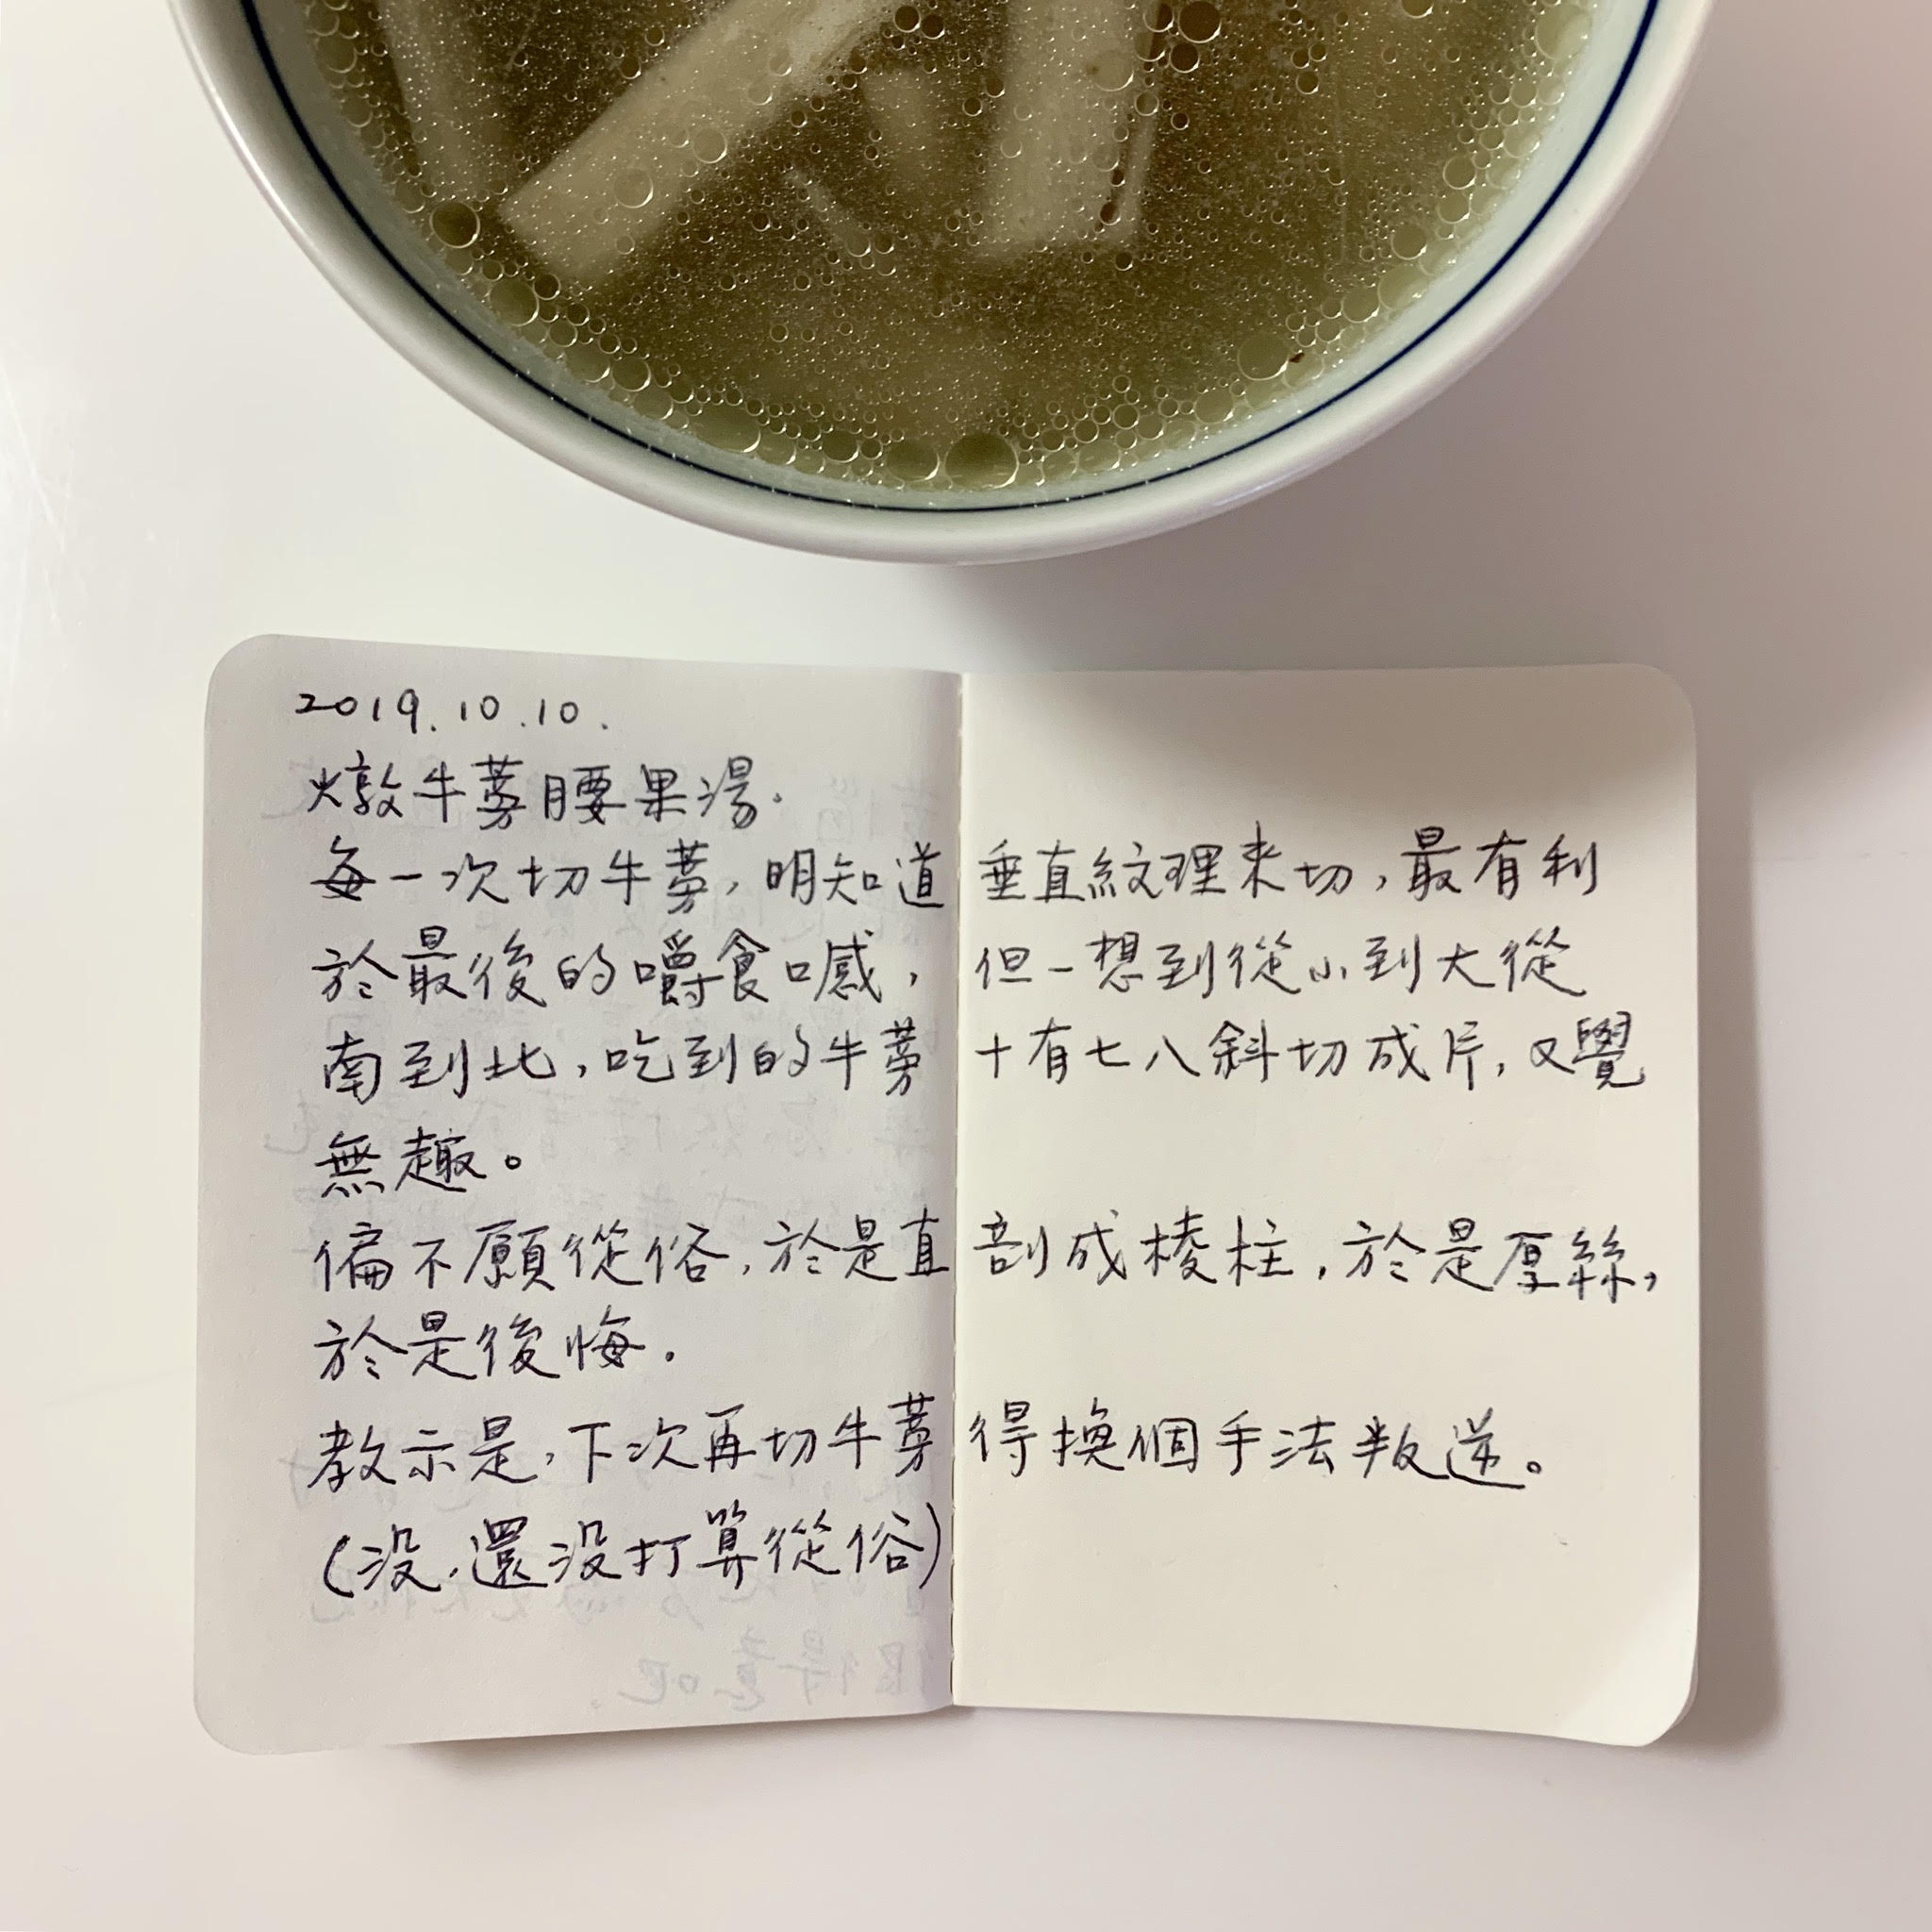 2019.10.10.
燉牛蒡腰果湯.
每一次切牛蒡,明知道垂直紋理來切,最有利
於最後的嚼食口感,但一想到從小到大從
南到北,吃到的牛蒡十有七八斜切成片,又覺
無趣。
偏不願從俗,於是直剖成棱柱,於是厚絲,
於是後悔.
教示是,下次再切牛蒡得換個手法叛逆。
(沒,還沒打算從俗)